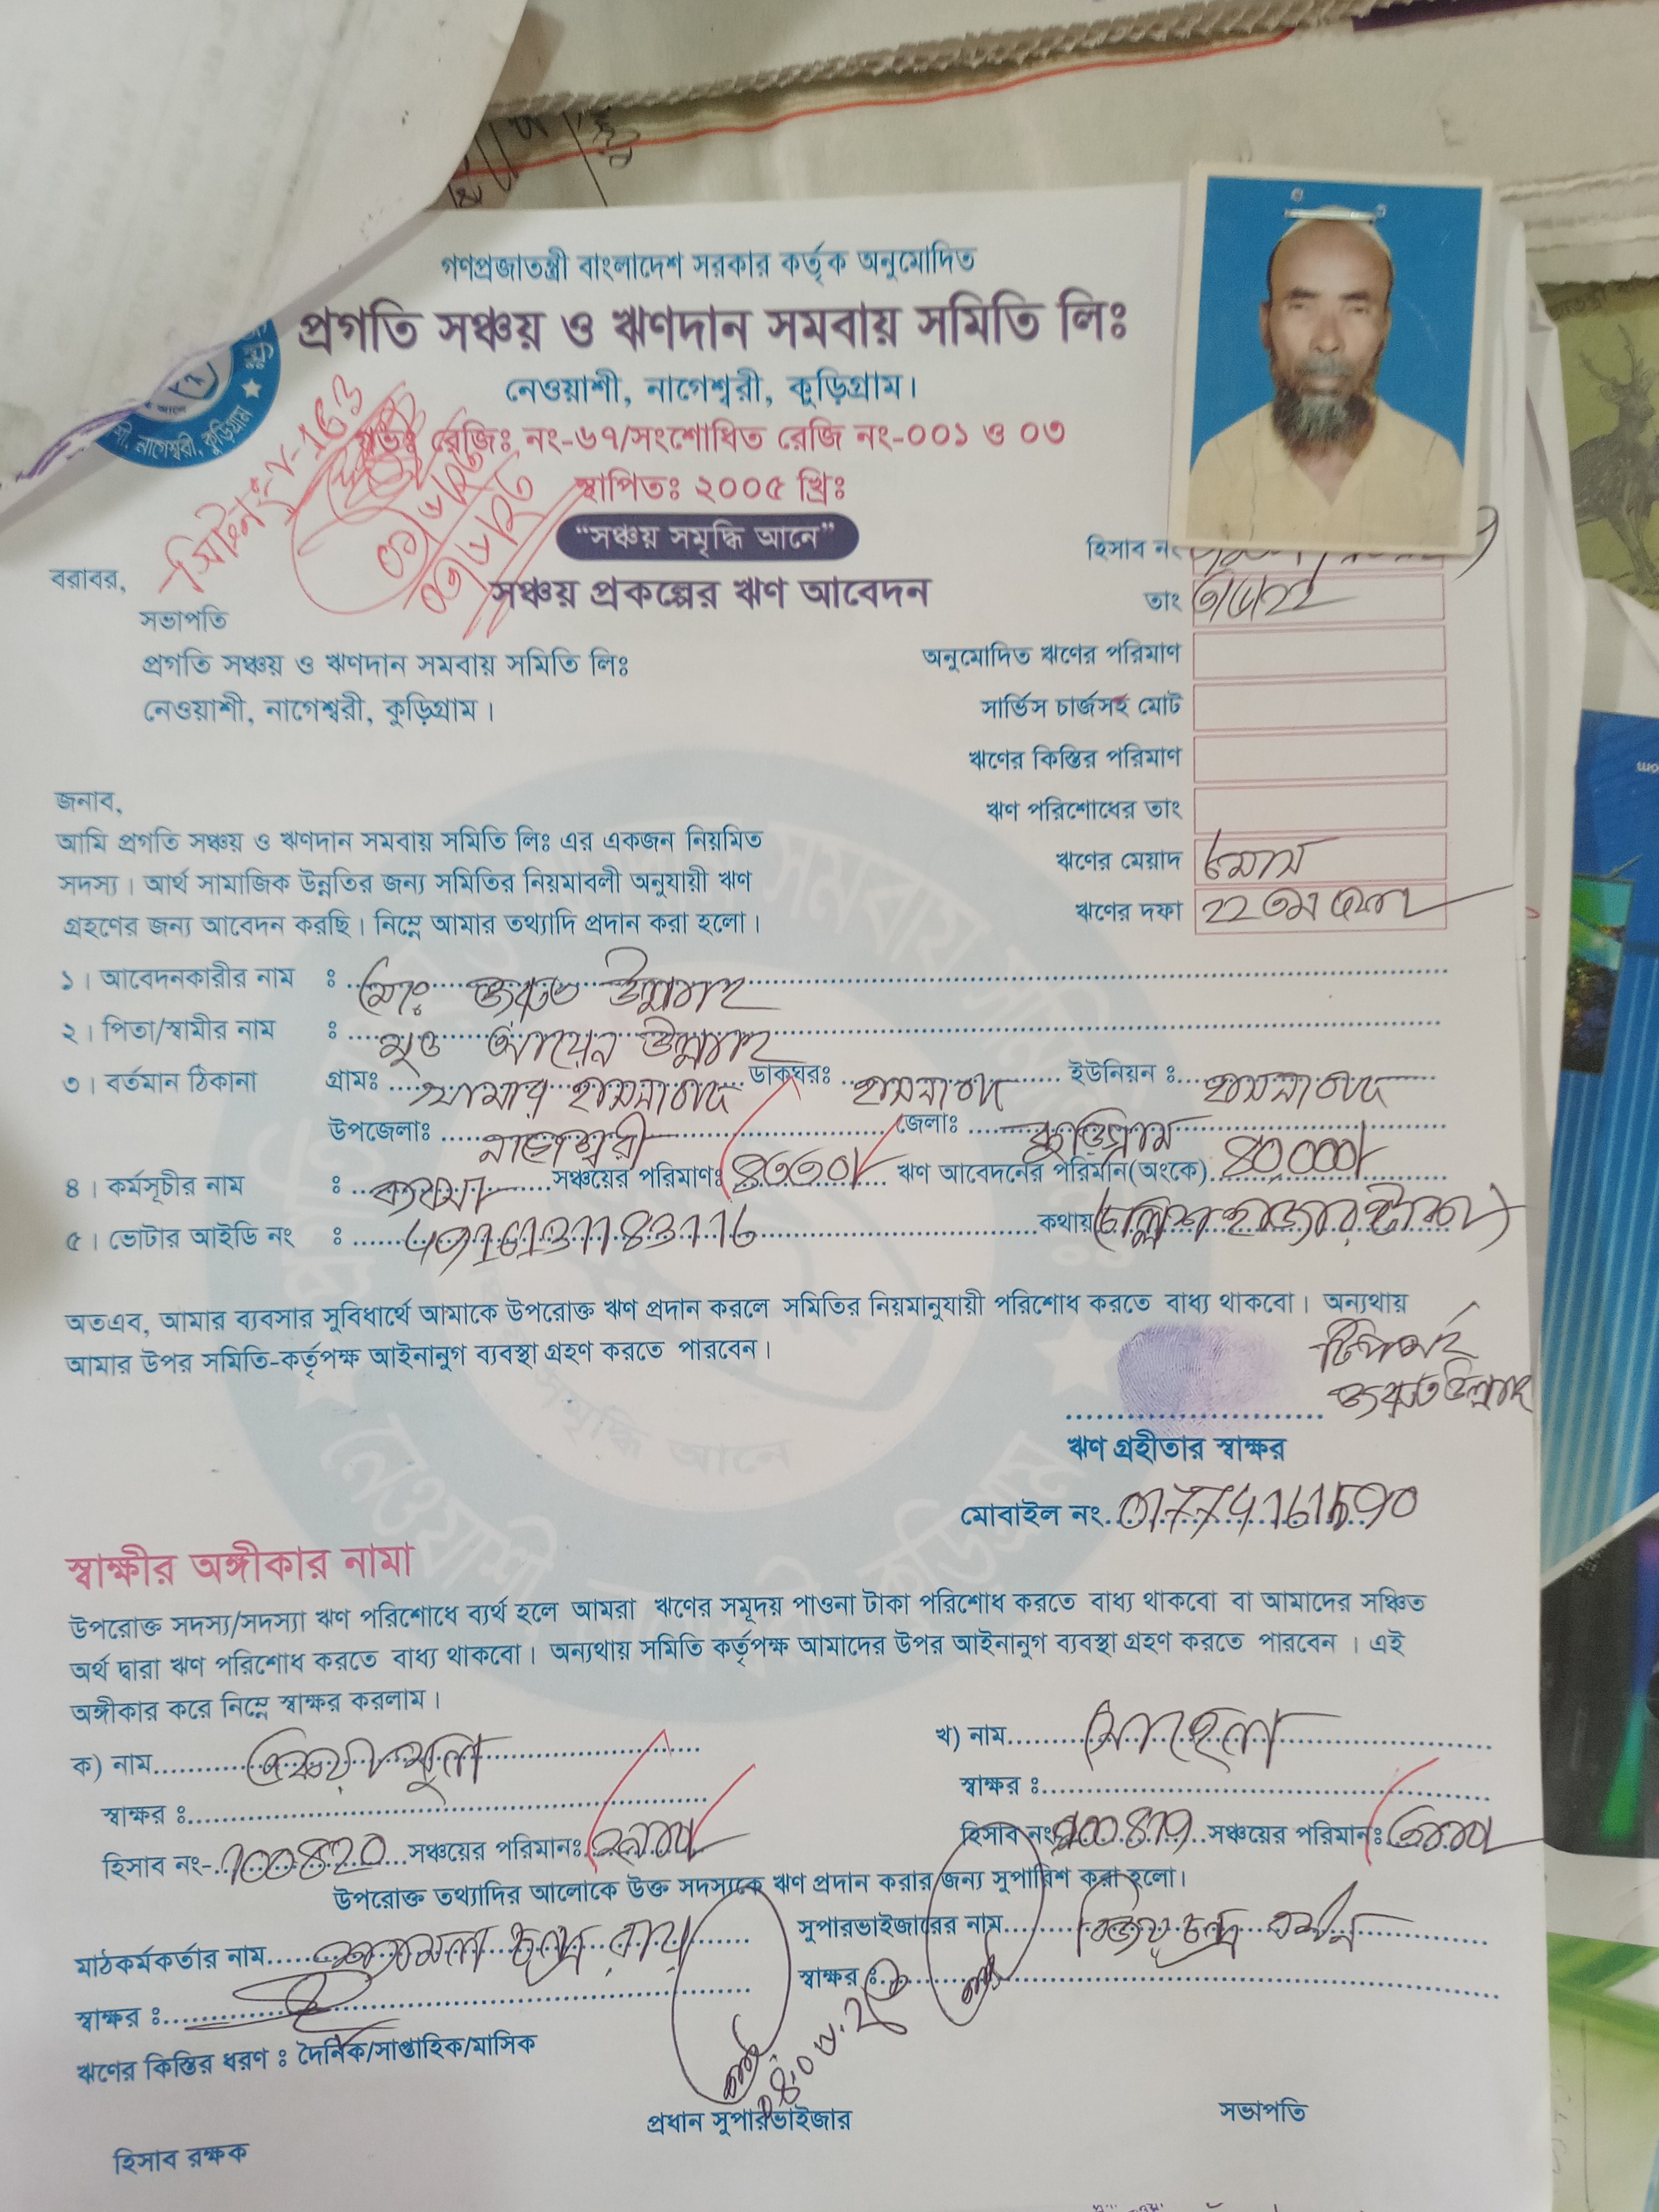 গণপ্রজাতন্ত্রী বাংলাদেশ সরকার কর্তৃক অনুমোদিত
প্রগতি সঞ্চয় ও ঋণদান সমবায় সমিতি লিঃ
নেওয়াশী, নাগেশ্বরী, কুড়িগ্রাম।
রেজিঃ নং-৬৭/সংশোধিত রেজি নং-০০১ ও ০৩
স্থাপিতঃ ২০০৫ খ্রিঃ
“সঞ্চয় সমৃদ্ধি আনে”
সঞ্চয় প্রকল্পের ঋণ আবেদন
নাগেশ্বরী, কুড়িগ্রাম ★
হিসাব নং
তাং
অনুমোদিত ঋণের পরিমাণ
সার্ভিস চার্জসহ মোট
ঋণের কিস্তির পরিমাণ
ঋণ পরিশোধের তাং
ঋণের মেয়াদ
ঋণের দফা
বরাবর,
সভাপতি
প্রগতি সঞ্চয় ও ঋণদান সমবায় সমিতি লিঃ
নেওয়াশী, নাগেশ্বরী, কুড়িগ্রাম।
জনাব,
আমি প্রগতি সঞ্চয় ও ঋণদান সমবায় সমিতি লিঃ এর একজন নিয়মিত
সদস্য। আর্থ সামাজিক উন্নতির জন্য সমিতির নিয়মাবলী অনুযায়ী ঋণ
গ্রহণের জন্য আবেদন করছি। নিম্নে আমার তথ্যাদি প্রদান করা হলো।
১। আবেদনকারীর নাম ঃ মোঃ উল্লাহ
২। পিতা/স্বামীর নাম ঃ মৃত উল্লাহ
৩। বর্তমান ঠিকানা গ্রামঃ খামার হাসনাবাদ ডাকঘরঃ হাসনাবাদ ইউনিয়ন ঃ হাসনাবাদ
উপজেলাঃ নাগেশ্বরী জেলাঃ কুড়িগ্রাম
৪। কর্মসূচীর নাম ঃ ব্যবসা সঞ্চয়ের পরিমাণঃ ৪৩৩০/ ঋণ আবেদনের পরিমান(অংকে) ৪০,০০০/
৫। ভোটার আইডি নং ঃ কথায় (চল্লিশ হাজার টাকা)
অতএব, আমার ব্যবসার সুবিধার্থে আমাকে উপরোক্ত ঋণ প্রদান করলে সমিতির নিয়মানুযায়ী পরিশোধ করতে বাধ্য থাকবো। অন্যথায়
আমার উপর সমিতি-কর্তৃপক্ষ আইনানুগ ব্যবস্থা গ্রহণ করতে পারবেন।
টিপসই
ঋণ গ্রহীতার স্বাক্ষর
মোবাইল নং
স্বাক্ষীর অঙ্গীকার নামা
উপরোক্ত সদস্য/সদস্যা ঋণ পরিশোধে ব্যর্থ হলে আমরা ঋণের সমূদয় পাওনা টাকা পরিশোধ করতে বাধ্য থাকবো বা আমাদের সঞ্চিত
অর্থ দ্বারা ঋণ পরিশোধ করতে বাধ্য থাকবো। অন্যথায় সমিতি কর্তৃপক্ষ আমাদের উপর আইনানুগ ব্যবস্থা গ্রহণ করতে পারবেন । এই
অঙ্গীকার করে নিম্নে স্বাক্ষর করলাম।
ক) নাম
খ) নাম সোহেল
স্বাক্ষর ঃ
স্বাক্ষর ঃ
হিসাব নং- সঞ্চয়ের পরিমানঃ
হিসাব নং সঞ্চয়ের পরিমানঃ
উপরোক্ত তথ্যাদির আলোকে উক্ত সদস্যকে ঋণ প্রদান করার জন্য সুপারিশ করা হলো।
মাঠকর্মকর্তার নাম চন্দ্র রায়
সুপারভাইজারের নাম চন্দ্র বর্মন
স্বাক্ষর ঃ
স্বাক্ষর ঃ
ঋণের কিস্তির ধরণ ঃ দৈনিক/সাপ্তাহিক/মাসিক
প্রধান সুপারভাইজার
সভাপতি
হিসাব রক্ষক